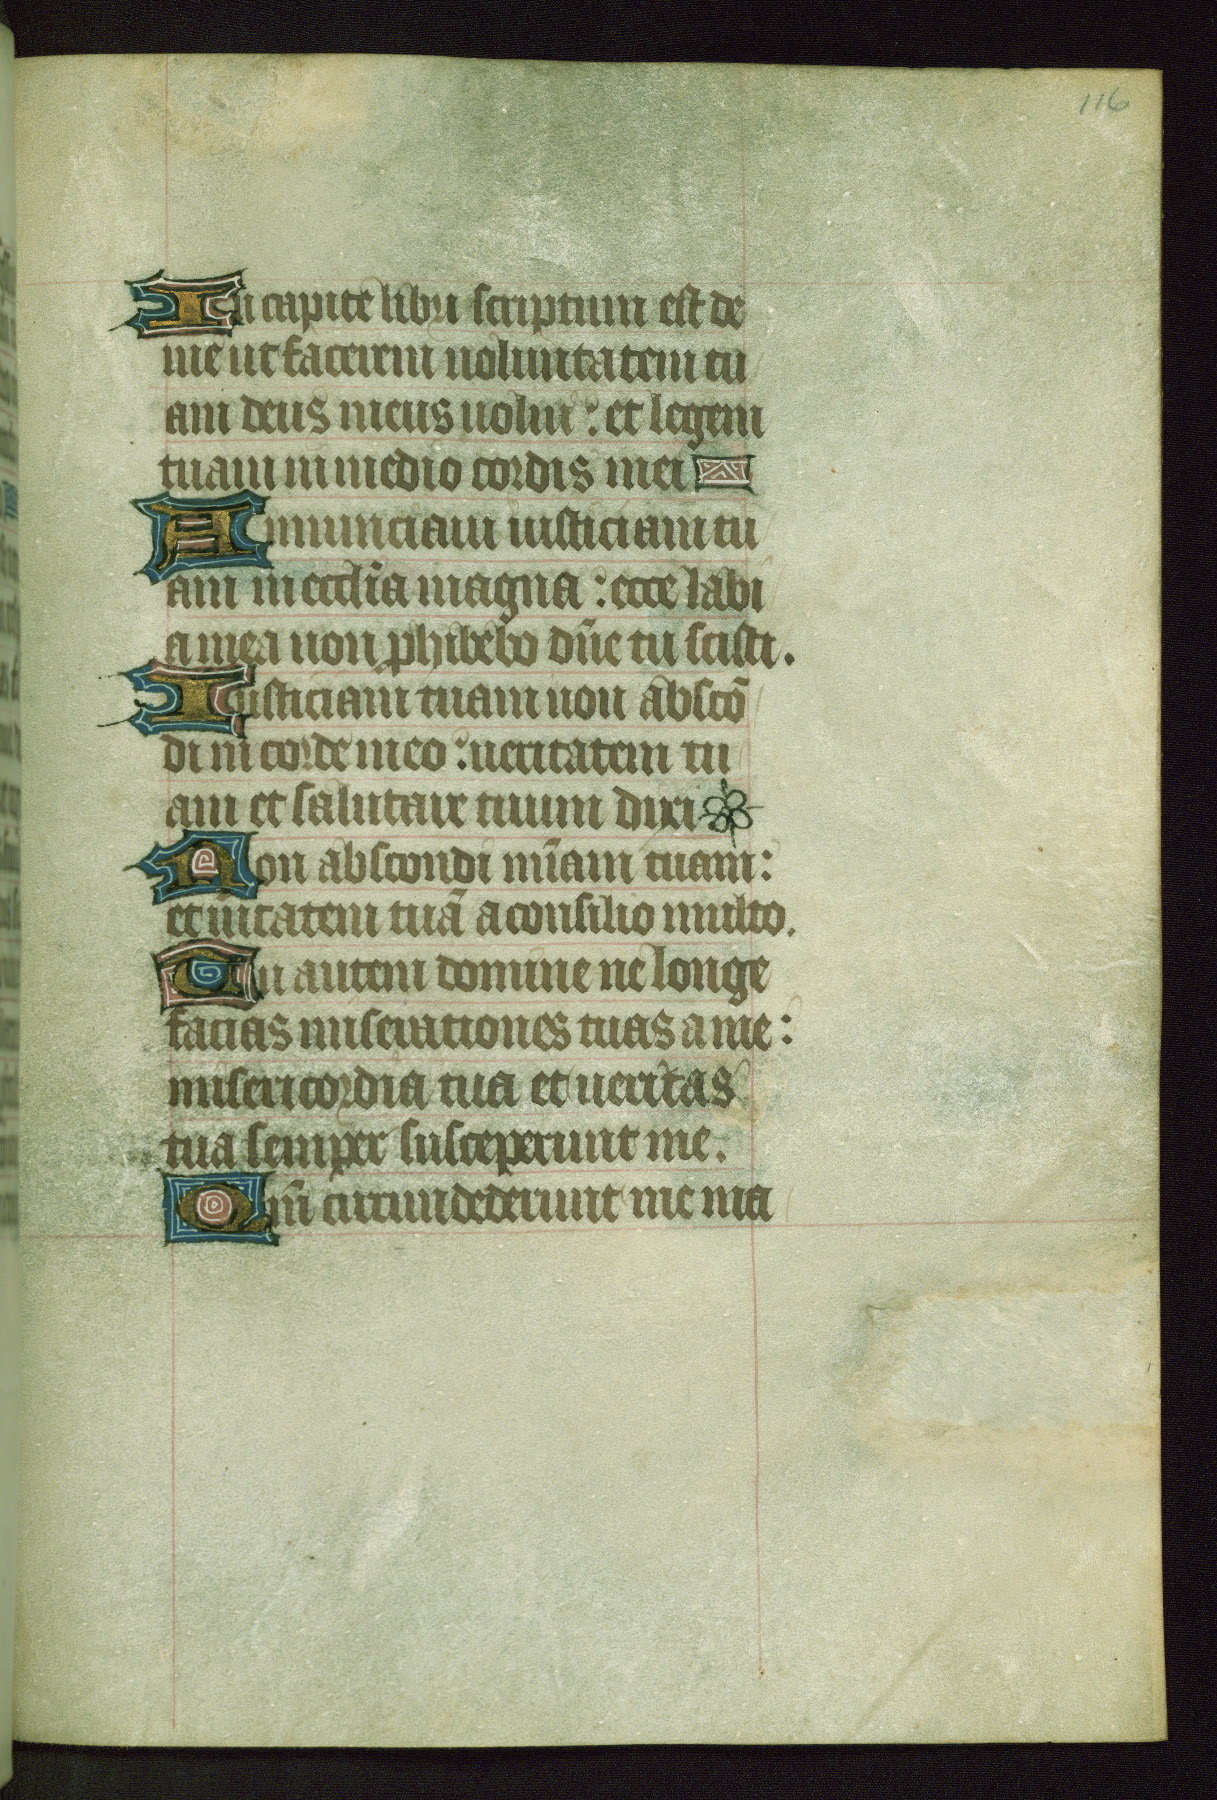 116
In capite libri scriptum est de
me ut facerem uoluntatem tu
am deus meus uolui : et legem
tuam in medio cordis mei
Annunciaui iusticiam tu
am in eccl̃ia magna : ecce labi
a mea non ꝓhibebo dñe tu scisti.
Iusticiam tuam non abscõ
di in corde meo : ueritatem tu
am et salutare tuum dixi
Non abscondi mĩam tuam :
et ũitatem tuã a consilio multo.
Tu autem domine ne longe
facias miserationes tuas a me :
misericordia tua et ueritas
tua semper susceperunt me.
Qm̃ circumdederunt me ma